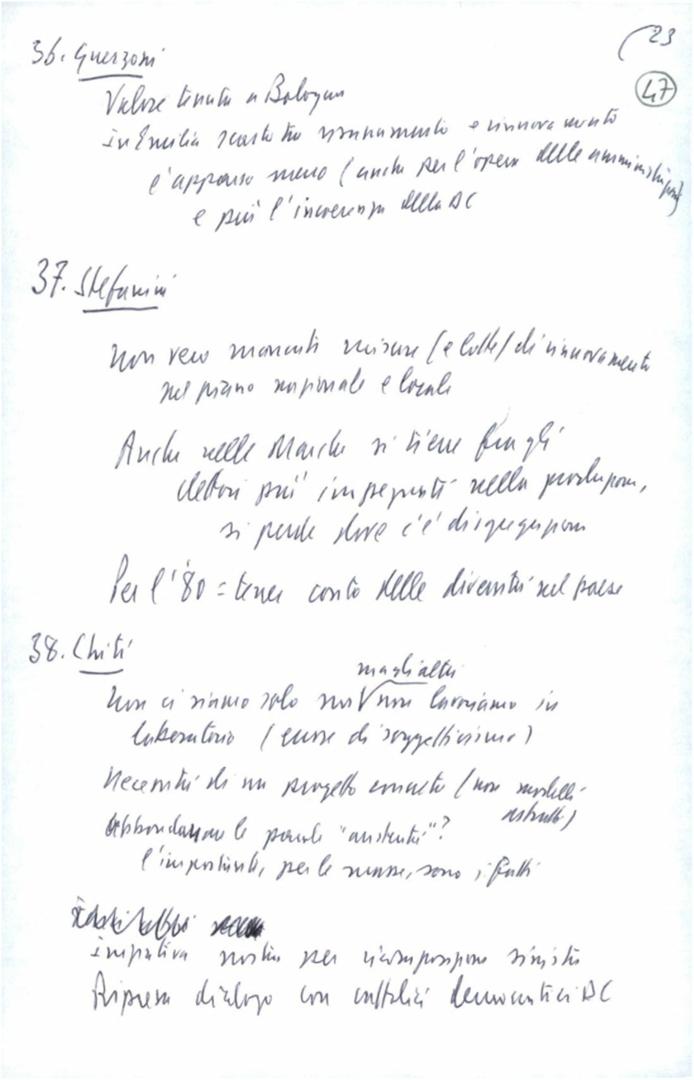 23
47
36. Guerzoni
Valore tenuta a Bologna
in Emilia scarto tra risanamento e rinnovamento
è apparso meno (anche per l'opera delle amministrazioni)
e più l'incoerenza della DC
37. Stefanini
Non vero mancanti misure (e lotte) di rinnovamento
nel piano nazionale e locale
Anche nelle Marche si tiene fra gli
elettori più impegnati nella produzione,
si perde dove c'è disgregazione
Per l'80 = tener conto delle diversità nel paese
38. Chiti
ma gli altri
Non ci siamo solo noi non lavoriamo in
laboratorio (errore di soggettivismo)
Necessità di un progetto concreto (non modelli
astratti)
Abbandonare le parole "austerità"?
l'importante, per le masse, sono i fatti
iniziativa nostra per ricomposizione sinistra
Ripresa dialogo con cattolici democratici DC